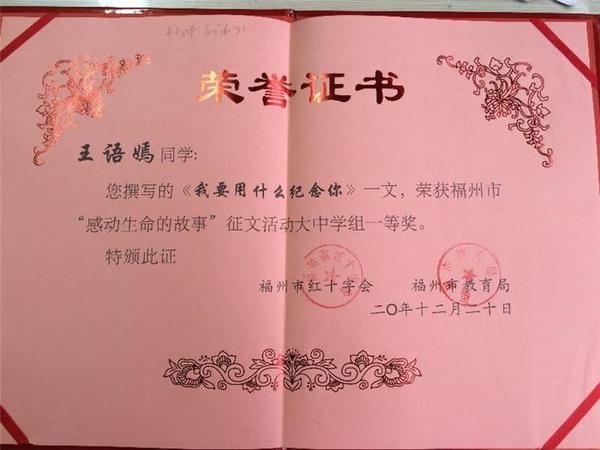 荣誉证书
王语嫣同学:
您撰写的《我要用什么纪念你》一文,荣获福州市
“感动生命的故事”征文活动大中学组一等奖。
特颁此证
福州市红十字会 福州市教育局
二〇年十二月二十日